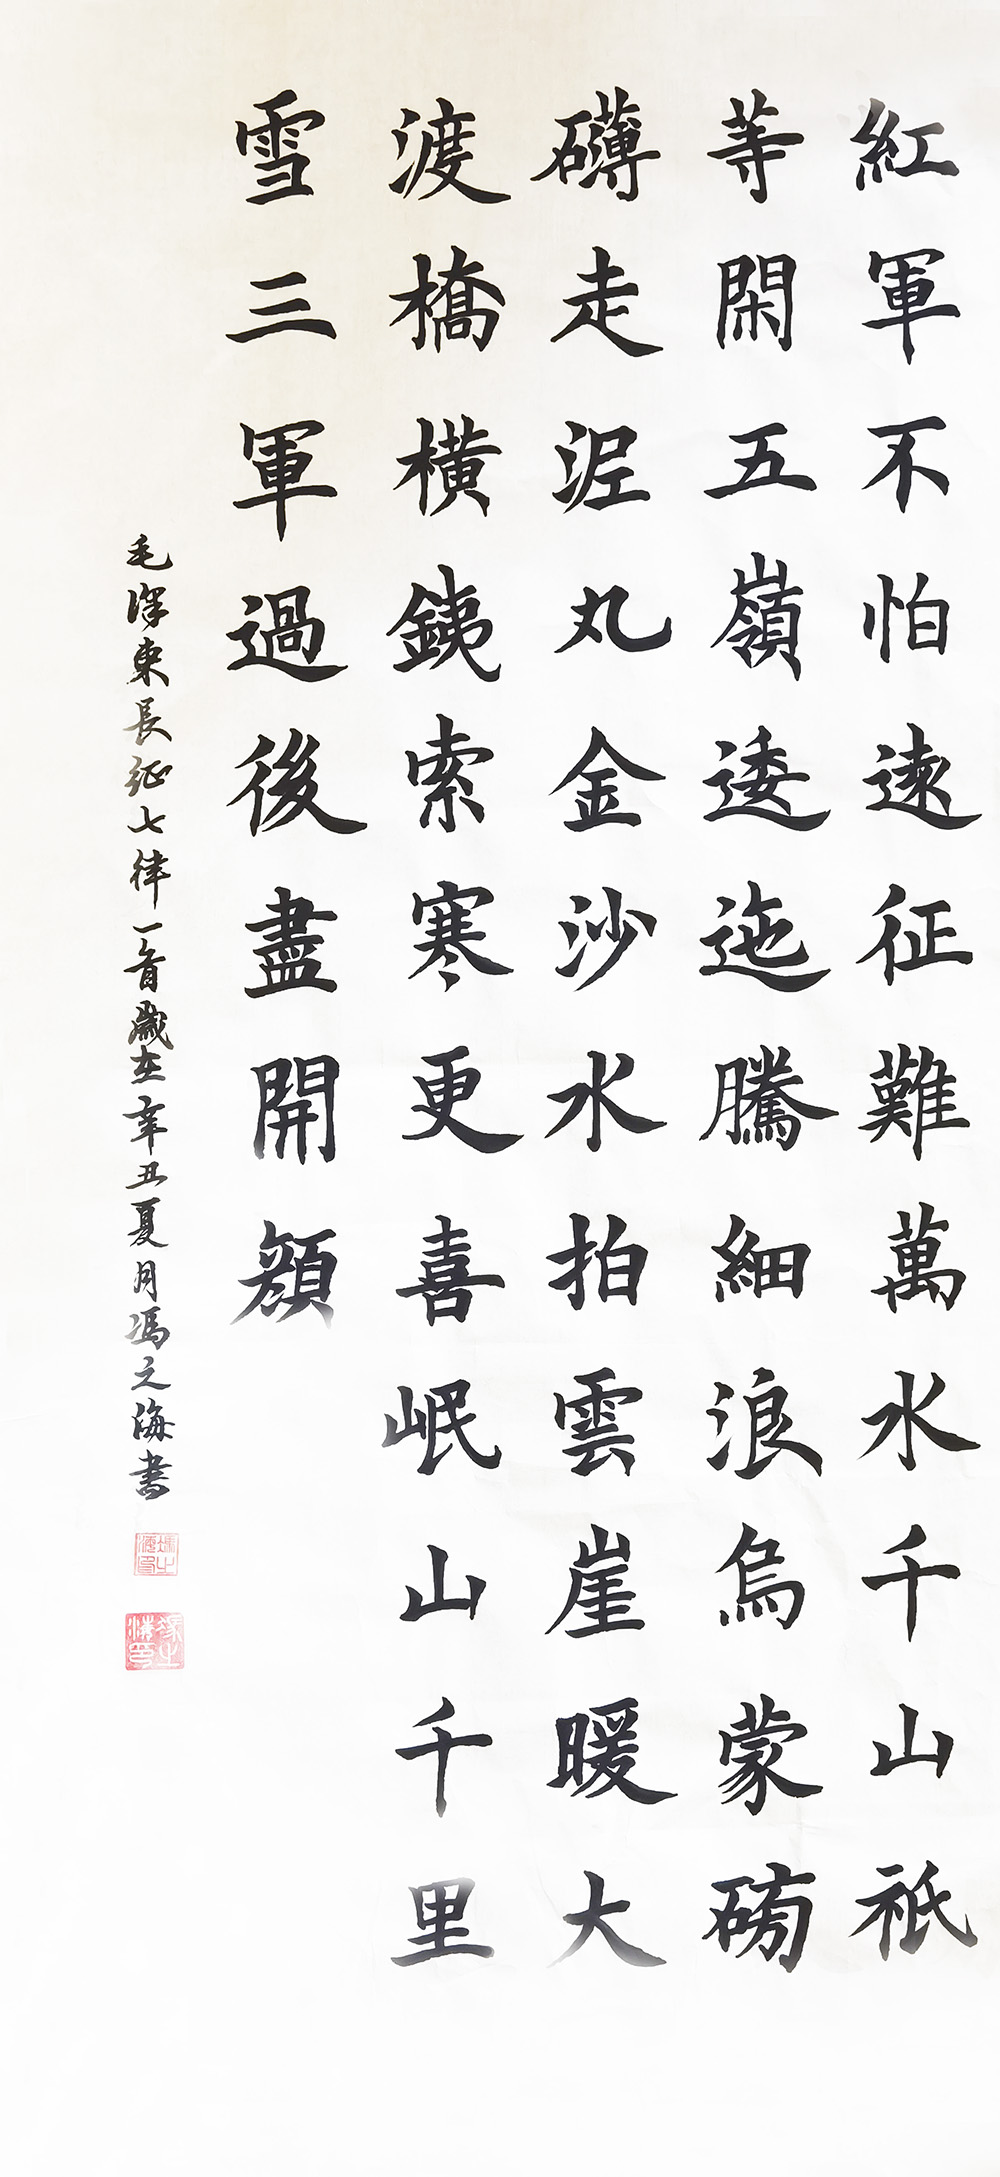 紅軍不怕遠征難萬水千山祇
等閑五嶺逶迤騰細浪烏蒙磅
礴走泥丸金沙水拍雲崖暖大
渡橋橫銕索寒更喜岷山千里
雪三軍過後盡開顏
毛澤東長征七律一首歲在辛丑夏月馮之海書